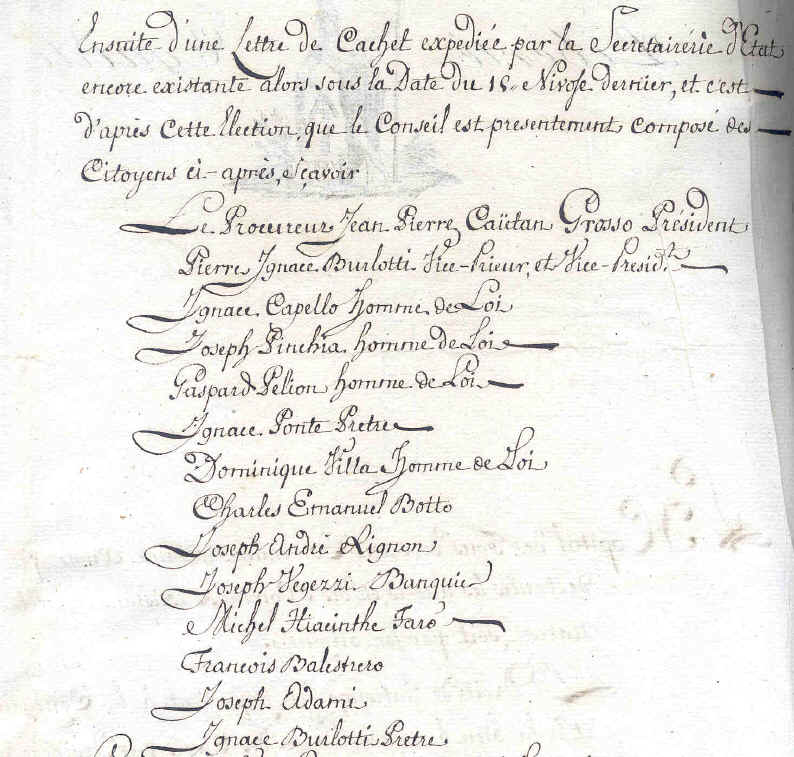 Ensuite d'une Lettre de Cachet expediée par la Secretairérie d'Etat
encore existante alors sous la Date du 18 Nivose dernier, et c'est
d'après Cette Election, que le Conseil est presentement composé des
Citoyens ci-après, sçavoir
Le Procureur Jean Pierre Caïetan Grosso Président
Pierre Ignace Burlotti Vice-Prieur, et Vice-Presid.t
Ignace Capello Homme de Loi
Joseph Pinchia homme de Loi
Gaspard Pelion homme de Loi
Ignace Ponte Pretre
Dominique Villa Homme de Loi
Charles Emanuel Botto
Joseph André Rignon
Joseph Vegezzi Banquier
Michel Hiacinthe Faro
Francois Balestrero
Joseph Adami
Ignace Burlotti Pretre